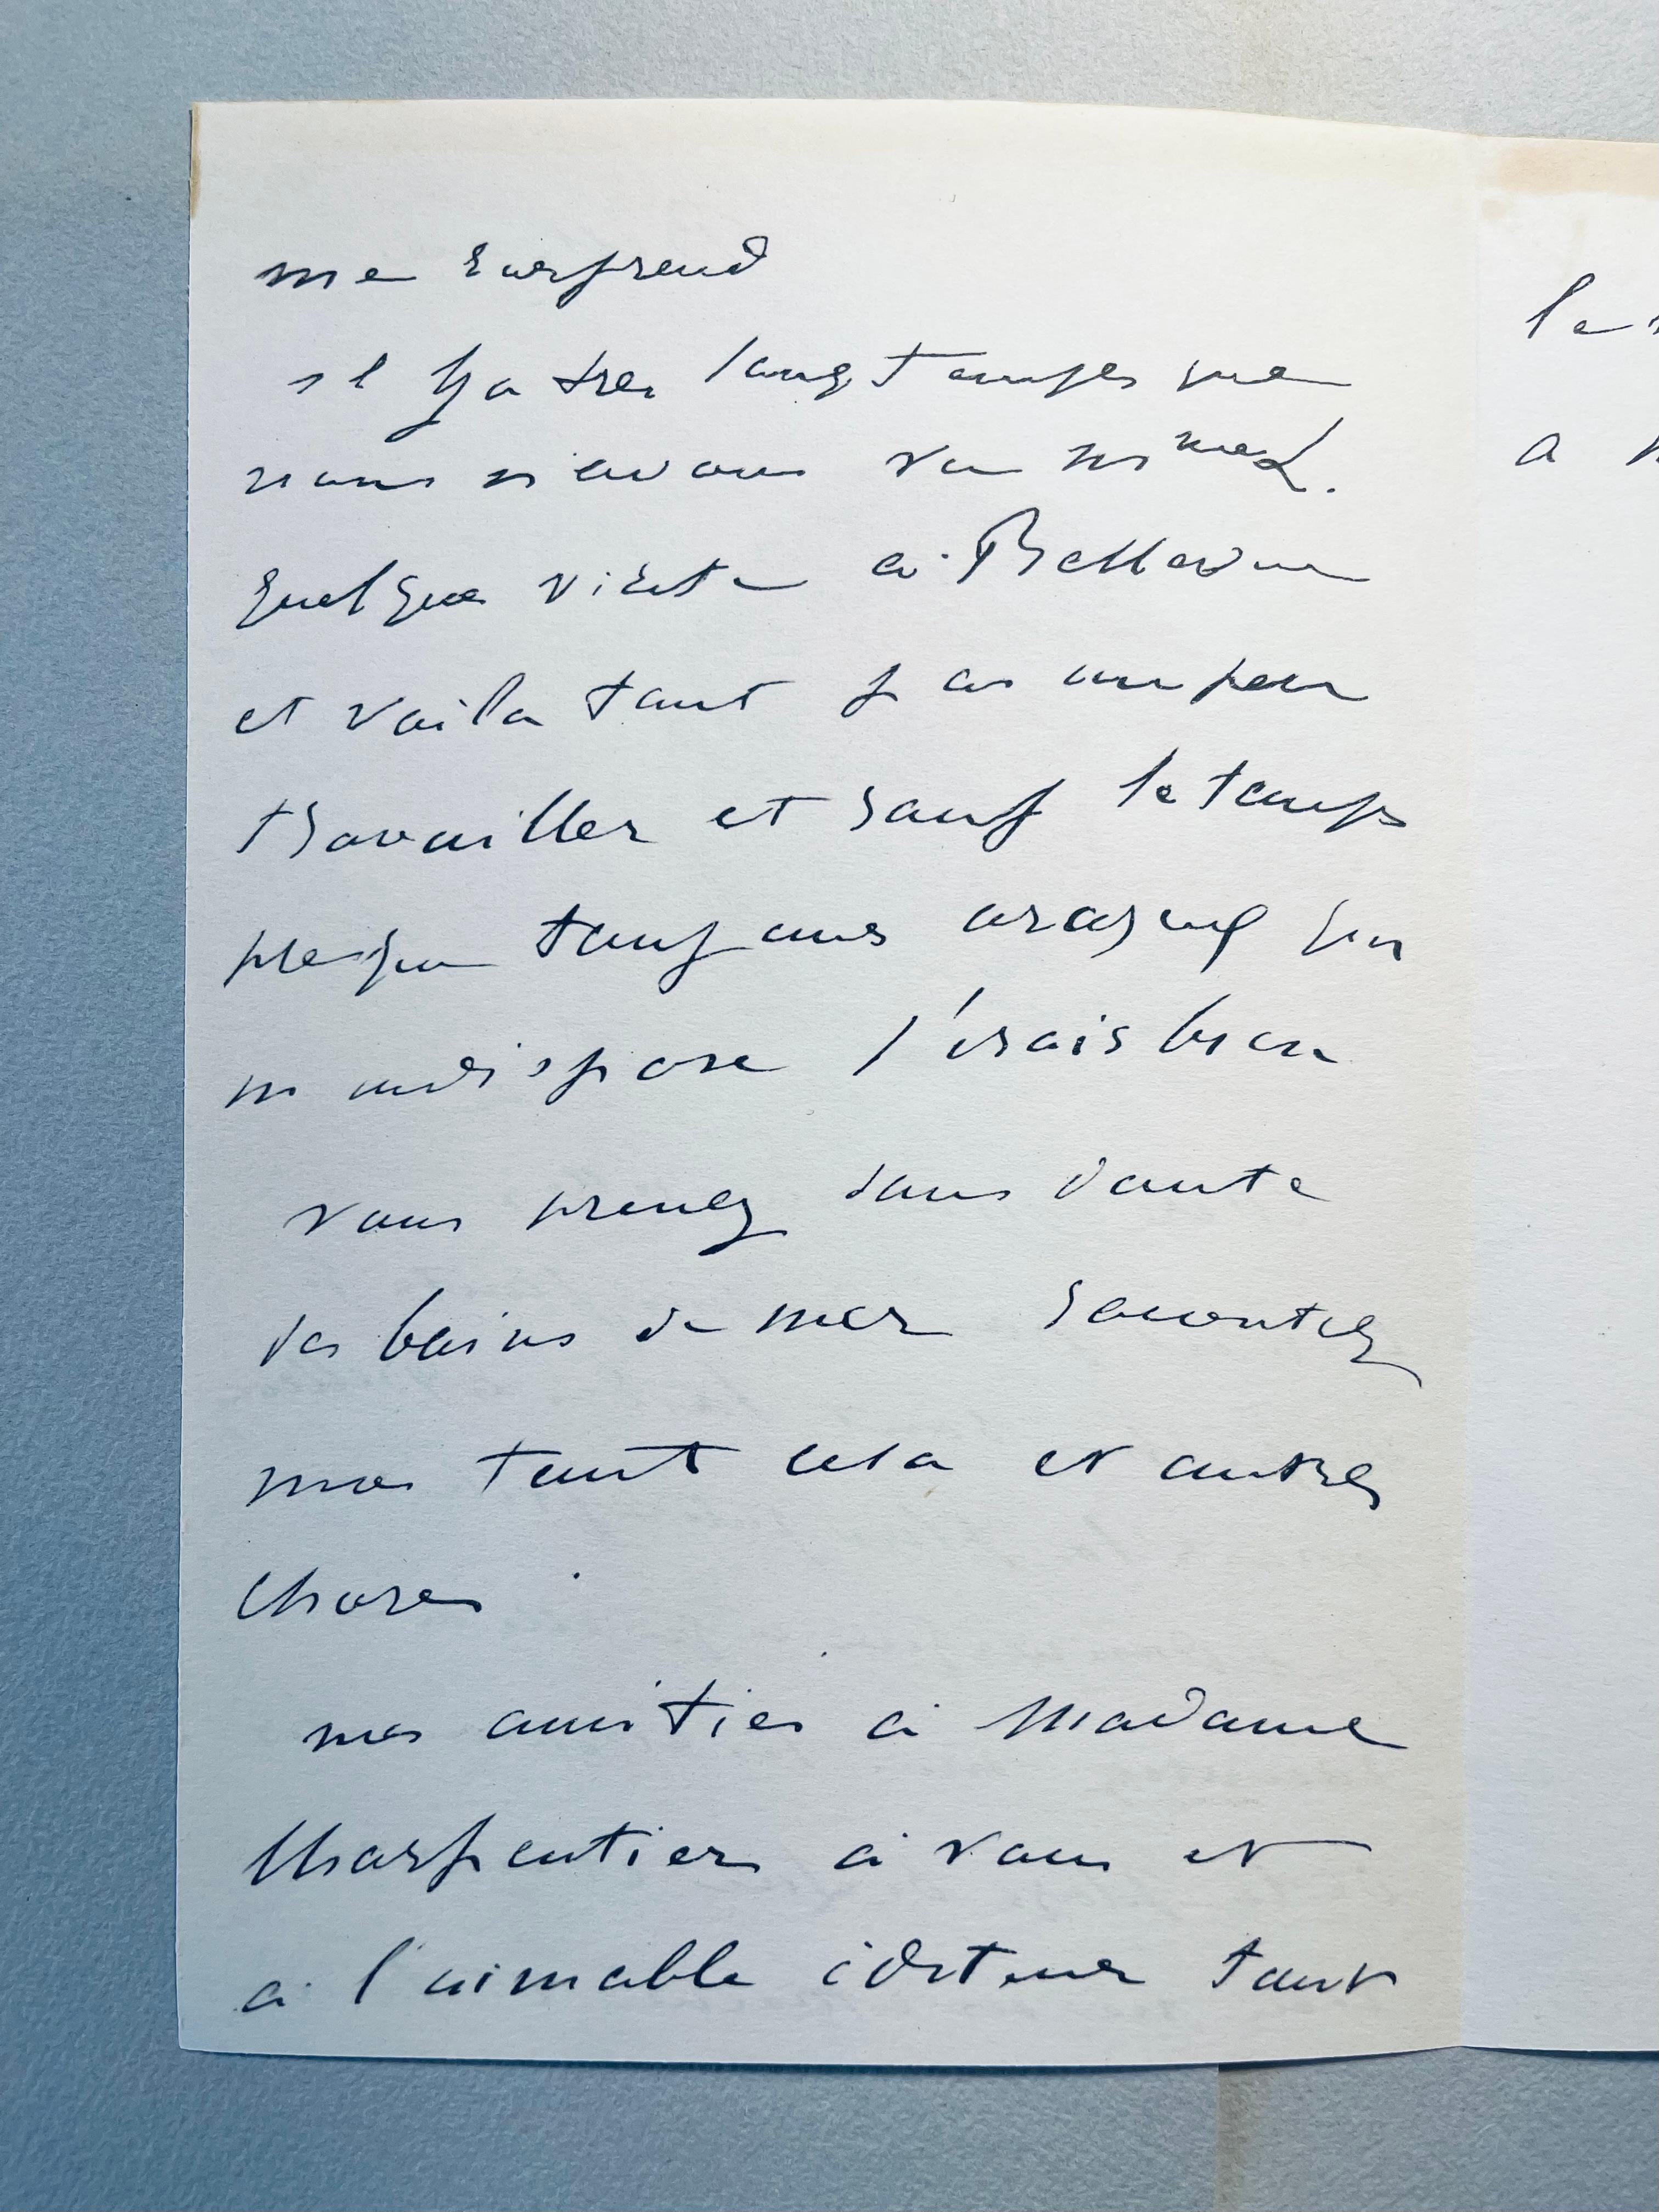 me surprend
il y a tres longtemps que
nous n'avons vu
quelque visite a Bellevue
et voila tout je un peu
travailler et sauf le temps
presque toujours orageux qui
m indispose j'irais bien
vous prenez sans doute
des bains de mer racontez
moi tout cela et autres
choses
mes amities a Madame
Charpentier a vous et
a l'aimable éditeur tout